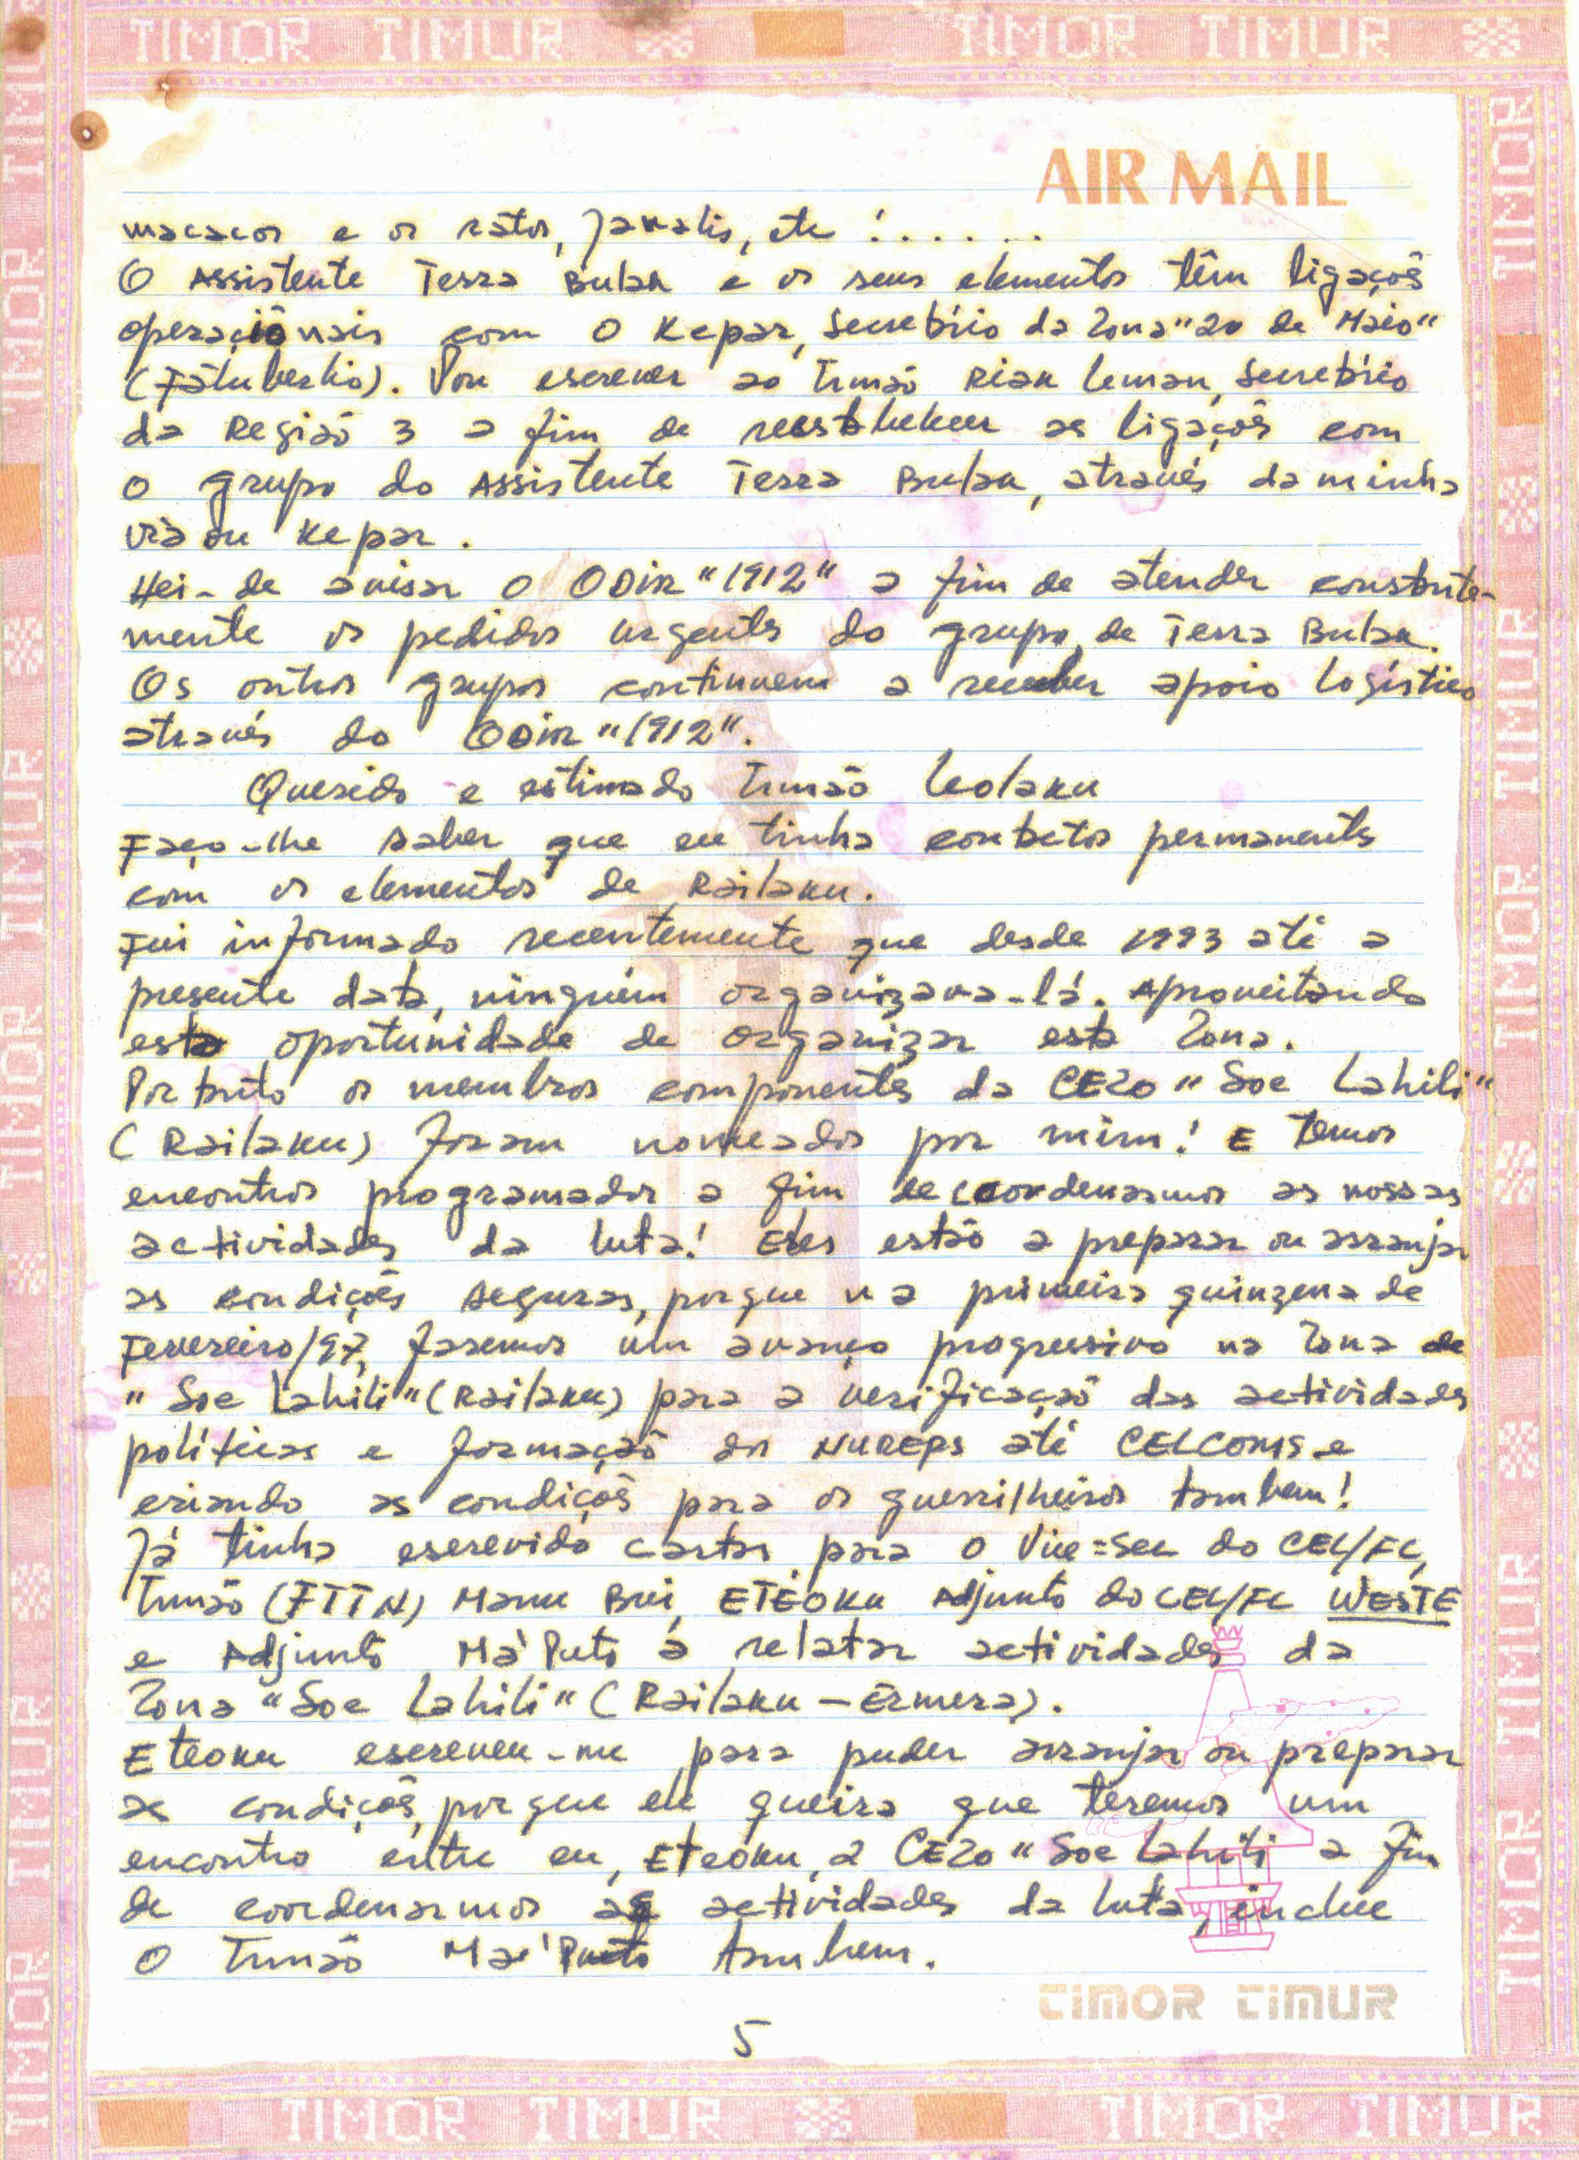 TIMOR TIMUR TIMOR TIMUR
AIR MAIL
macacos e os ratos, javalis, etc !......
O Assistente Terra Bulak e os seus elementos têm ligaçoês
operaciônais com o Kepar, Secretário da Zona "20 de Maio"
(Fátuberlio). Vou escrever ao Irmão Riak Leman, Secretário
da Região 3 a fim de as ligaçoês com
o grupo do Assistente Terra Bulak, através da minha
via ou Kepar.
Hei-de avisar o ODIR "1912" a fim de atender constante-
mente os pedidos urgentes do grupo de Terra Bulak.
Os outros grupos continuem a receber apoio logístico
através do ODIR "1912".
Querido e estimado Irmão Leolaku
Faço-lhe saber que eu tinha contactos permanentes
com os elementos de Railaku.
Fui informado recentemente que desde 1993 até a
presente data, ninguém organizava-lá. Aproveitando
esta oportunidade de organizar esta Zona.
Portanto os membros componentes da CEZO "Soe Lahili"
(Railaku) foram nomeados por mim! E temos
encontros programados a fim de coordenarmos as nossas
actividades da luta! Eles estão a preparar ou arranjar
as condições seguras, porque na primeira quinzena de
Fevereiro/97, faremos um avanço progressivo na Zona de
"Soe Lahili" (Railaku) para a verificação das actividades
políticas e formação dos NUREPS até CELCOMS e
criando as condiçoês para os guerrilheiros tambem!
Já tinha escrevido cartas para o Vice=Sec do CEL/FC,
Irmão (FTTN) Manu Bui, ETÉOKU Adjunto do CEL/FC WESTE
e Adjunto Má'Puto á relatar actividades da
Zona "Soe Lahili" (Railaku – Ermera).
Eteoku escreveu-me para puder arranjar ou preparar
as condiçoês, porque ele queira que teremos um
encontro entre eu, Eteoku, a CEZO "Soe Lahili a fim
de coordenarmos as actividades da luta, inclue
o Irmão Ma'Puto tambem.
TIMOR TIMUR
5
TIMOR TIMUR TIMOR TIMUR